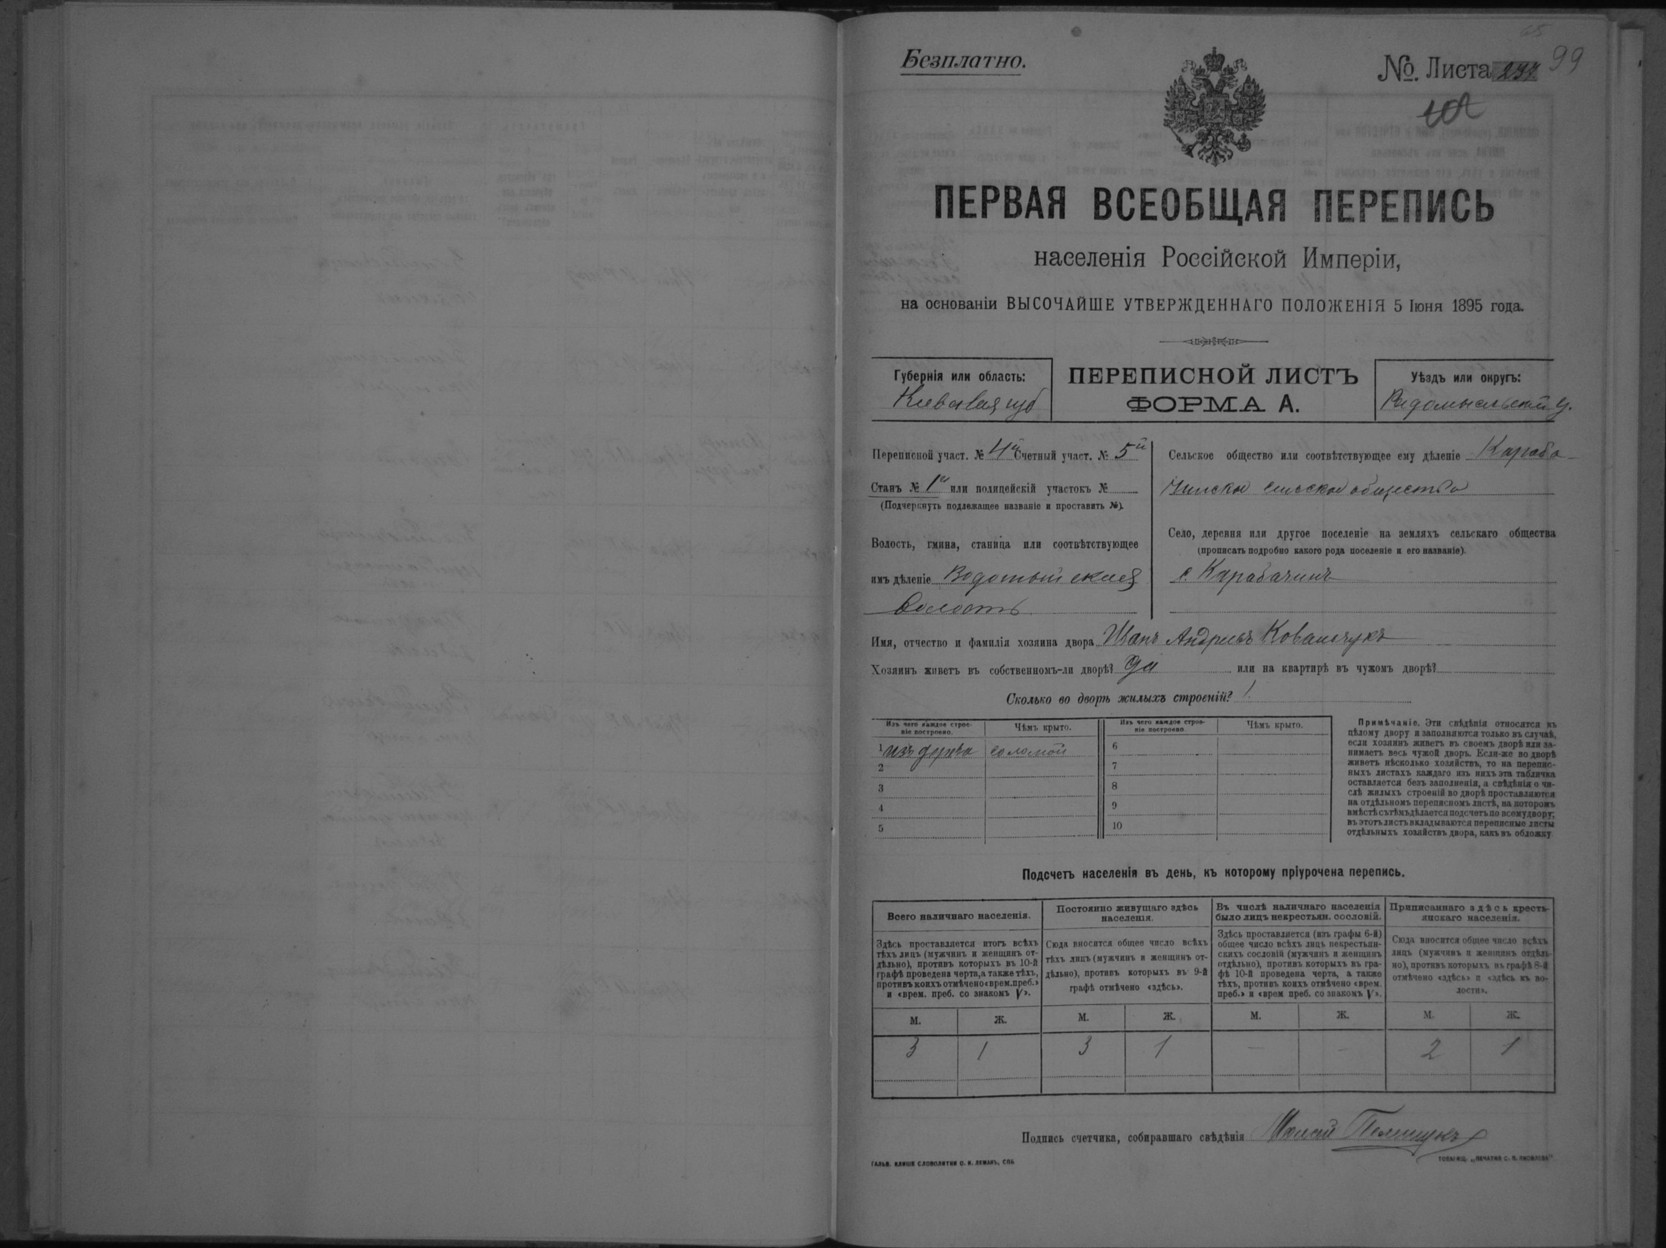 Безплатно.
№. Листа 99
ПЕРВАЯ ВСЕОБЩАЯ ПЕРЕПИСЬ
населенія Россійской Имперіи,
на основаніи ВЫСОЧАЙШЕ УТВЕРЖДЕННАГО ПОЛОЖЕНІЯ 5 Іюня 1895 года.
Губернія или область:
Киевская губ
ПЕРЕПИСНОЙ ЛИСТЪ
ФОРМА А.
Уѣздъ или округъ:
Радомысльский у.
Переписной участ. № 4й Счетный участ. № 5й
Станъ № 1й или полицейскій участокъ №
(Подчеркнуть подлежащее названіе и проставить №).
Волость, гмина, станица или соотвѣтствующее
имъ дѣленіе Водотыйская
волость
Сельское общество или соотвѣтствующее ему дѣленіе Караба-
чинское сельское общество
Село, деревня или другое поселеніе на земляхъ сельскаго общества
(прописать подробно какого рода поселеніе и его названіе).
с. Карабачинъ
Имя, отчество и фамилія хозяина двора Иванъ Андреевъ Ковальчукъ
Хозяинъ живетъ въ собственномъ-ли дворѣ? Да или на квартирѣ въ чужомъ дворѣ?
Сколько во дворѣ жилыхъ строеній? 1
Изъ чего каждое строе-
ніе построено.
Чѣмъ крыто.
Изъ чего каждое строе-
ніе построено.
Чѣмъ крыто.
1 изъ дерева соломой
2
3
4
5
6
7
8
9
10
Примѣчаніе. Эти свѣдѣнія относятся къ
цѣлому двору и заполняются только въ случаѣ,
если хозяинъ живетъ въ своемъ дворѣ или за-
нимаетъ весь чужой дворъ. Если-же во дворѣ
живетъ нѣсколько хозяйствъ, то на перепис-
ныхъ листахъ каждаго изъ нихъ эта табличка
оставляется безъ заполненія, а свѣдѣнія о чи-
слѣ жилыхъ строеній во дворѣ проставляются
на отдѣльномъ переписномъ листѣ, на которомъ
вмѣстѣ съ тѣмъ дѣлается подсчетъ по всему двору;
въ этотъ листъ вкладываются переписные листы
отдѣльныхъ хозяйствъ двора, какъ въ обложку
Подсчетъ населенія въ день, къ которому пріурочена перепись.
Всего наличнаго населенія.
Здѣсь проставляется итогъ всѣхъ
тѣхъ лицъ (мужчинъ и женщинъ от-
дѣльно), противъ которыхъ въ 10-й
графѣ проведена черта, а также тѣхъ,
противъ коихъ отмѣчено «врем. преб.»
и «врем. преб. со знакомъ V».
Постоянно живущаго здѣсь
населенія.
Сюда вносится общее число всѣхъ
тѣхъ лицъ (мужчинъ и женщинъ от-
дѣльно), противъ которыхъ въ 9-й
графѣ отмѣчено «здѣсь».
Въ числѣ наличнаго населенія
было лицъ некрестьян. сословій.
Здѣсь проставляется (изъ графы 6-й)
общее число всѣхъ лицъ некрестьян-
скихъ сословій (мужчинъ и женщинъ
отдѣльно), противъ которыхъ въ гра-
фѣ 10-й проведена черта, а также
тѣхъ, противъ коихъ отмѣчено «врем.
преб.» и «врем преб. со знакомъ V».
Приписаннаго здѣсь кресть-
янскаго населенія.
Сюда вносится общее число всѣхъ
лицъ (мужчинъ и женщинъ отдѣль-
но), противъ которыхъ въ графѣ 8-й
отмѣчено «здѣсь» и «здѣсь въ во-
лости».
М. Ж. М. Ж. М. Ж. М. Ж.
3 1 3 1 — — 2 1
Подпись счетчика, собиравшаго свѣдѣнія
ГАЛЬВ. КЛИШЕ СЛОВОЛИТНИ О. И. ЛЕМАНЪ, СПБ.
ТОВАРИЩ. „ПЕЧАТНЯ С. П. ЯКОВЛЕВА“